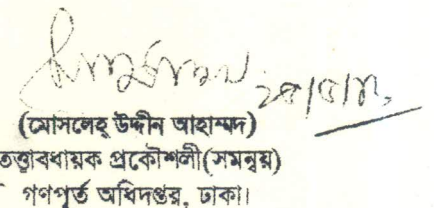 (মোসলেহ্ উদ্দীন আহাম্মদ)
তত্তাবধায়ক প্রকৌশলী(সমন্বয়)
গণপূর্ত অধিদপ্তর, ঢাকা।